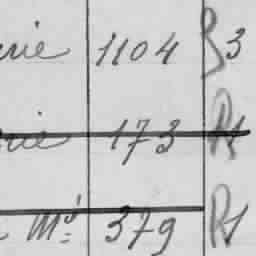 rie 1104 B3
rie 173 R1
Md 379 R1